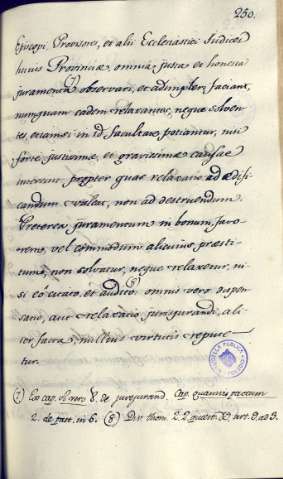 250.
Episcopi, Provisores, et alii Ecclesiastici Judices
huius Provinciæ, omnia justa, et honesta
juramenta (7) observari, et adimpleri faciant,
nunquam eadem relaxantes, neque solven-
tes, etiamsi in id facultate potiantur, nisi
forte justissimæ, et gravissimæ causæ
fuerint, propter quas relaxatio ad ædifi
candum valeat, non ad destruendum.
Preterea juramentum in bonum, favo-
rem, vel commodum alicuius præsti-
tum, non solvatur, neque relaxetur, ni-
si eo citato, et audito: omnis vero dispen-
satio, aut relaxatio jurisjurandi, ali
ter facta, nullius virtutis repute-
tur.
(7) Ex cap. et vero 8. de jurejurand. Cap. quamvis pactum
2. de pact. in 6. (8) Div. thom. 22 quæst. art. 9. ad 3.
BIBLIOTECA PUBLICA